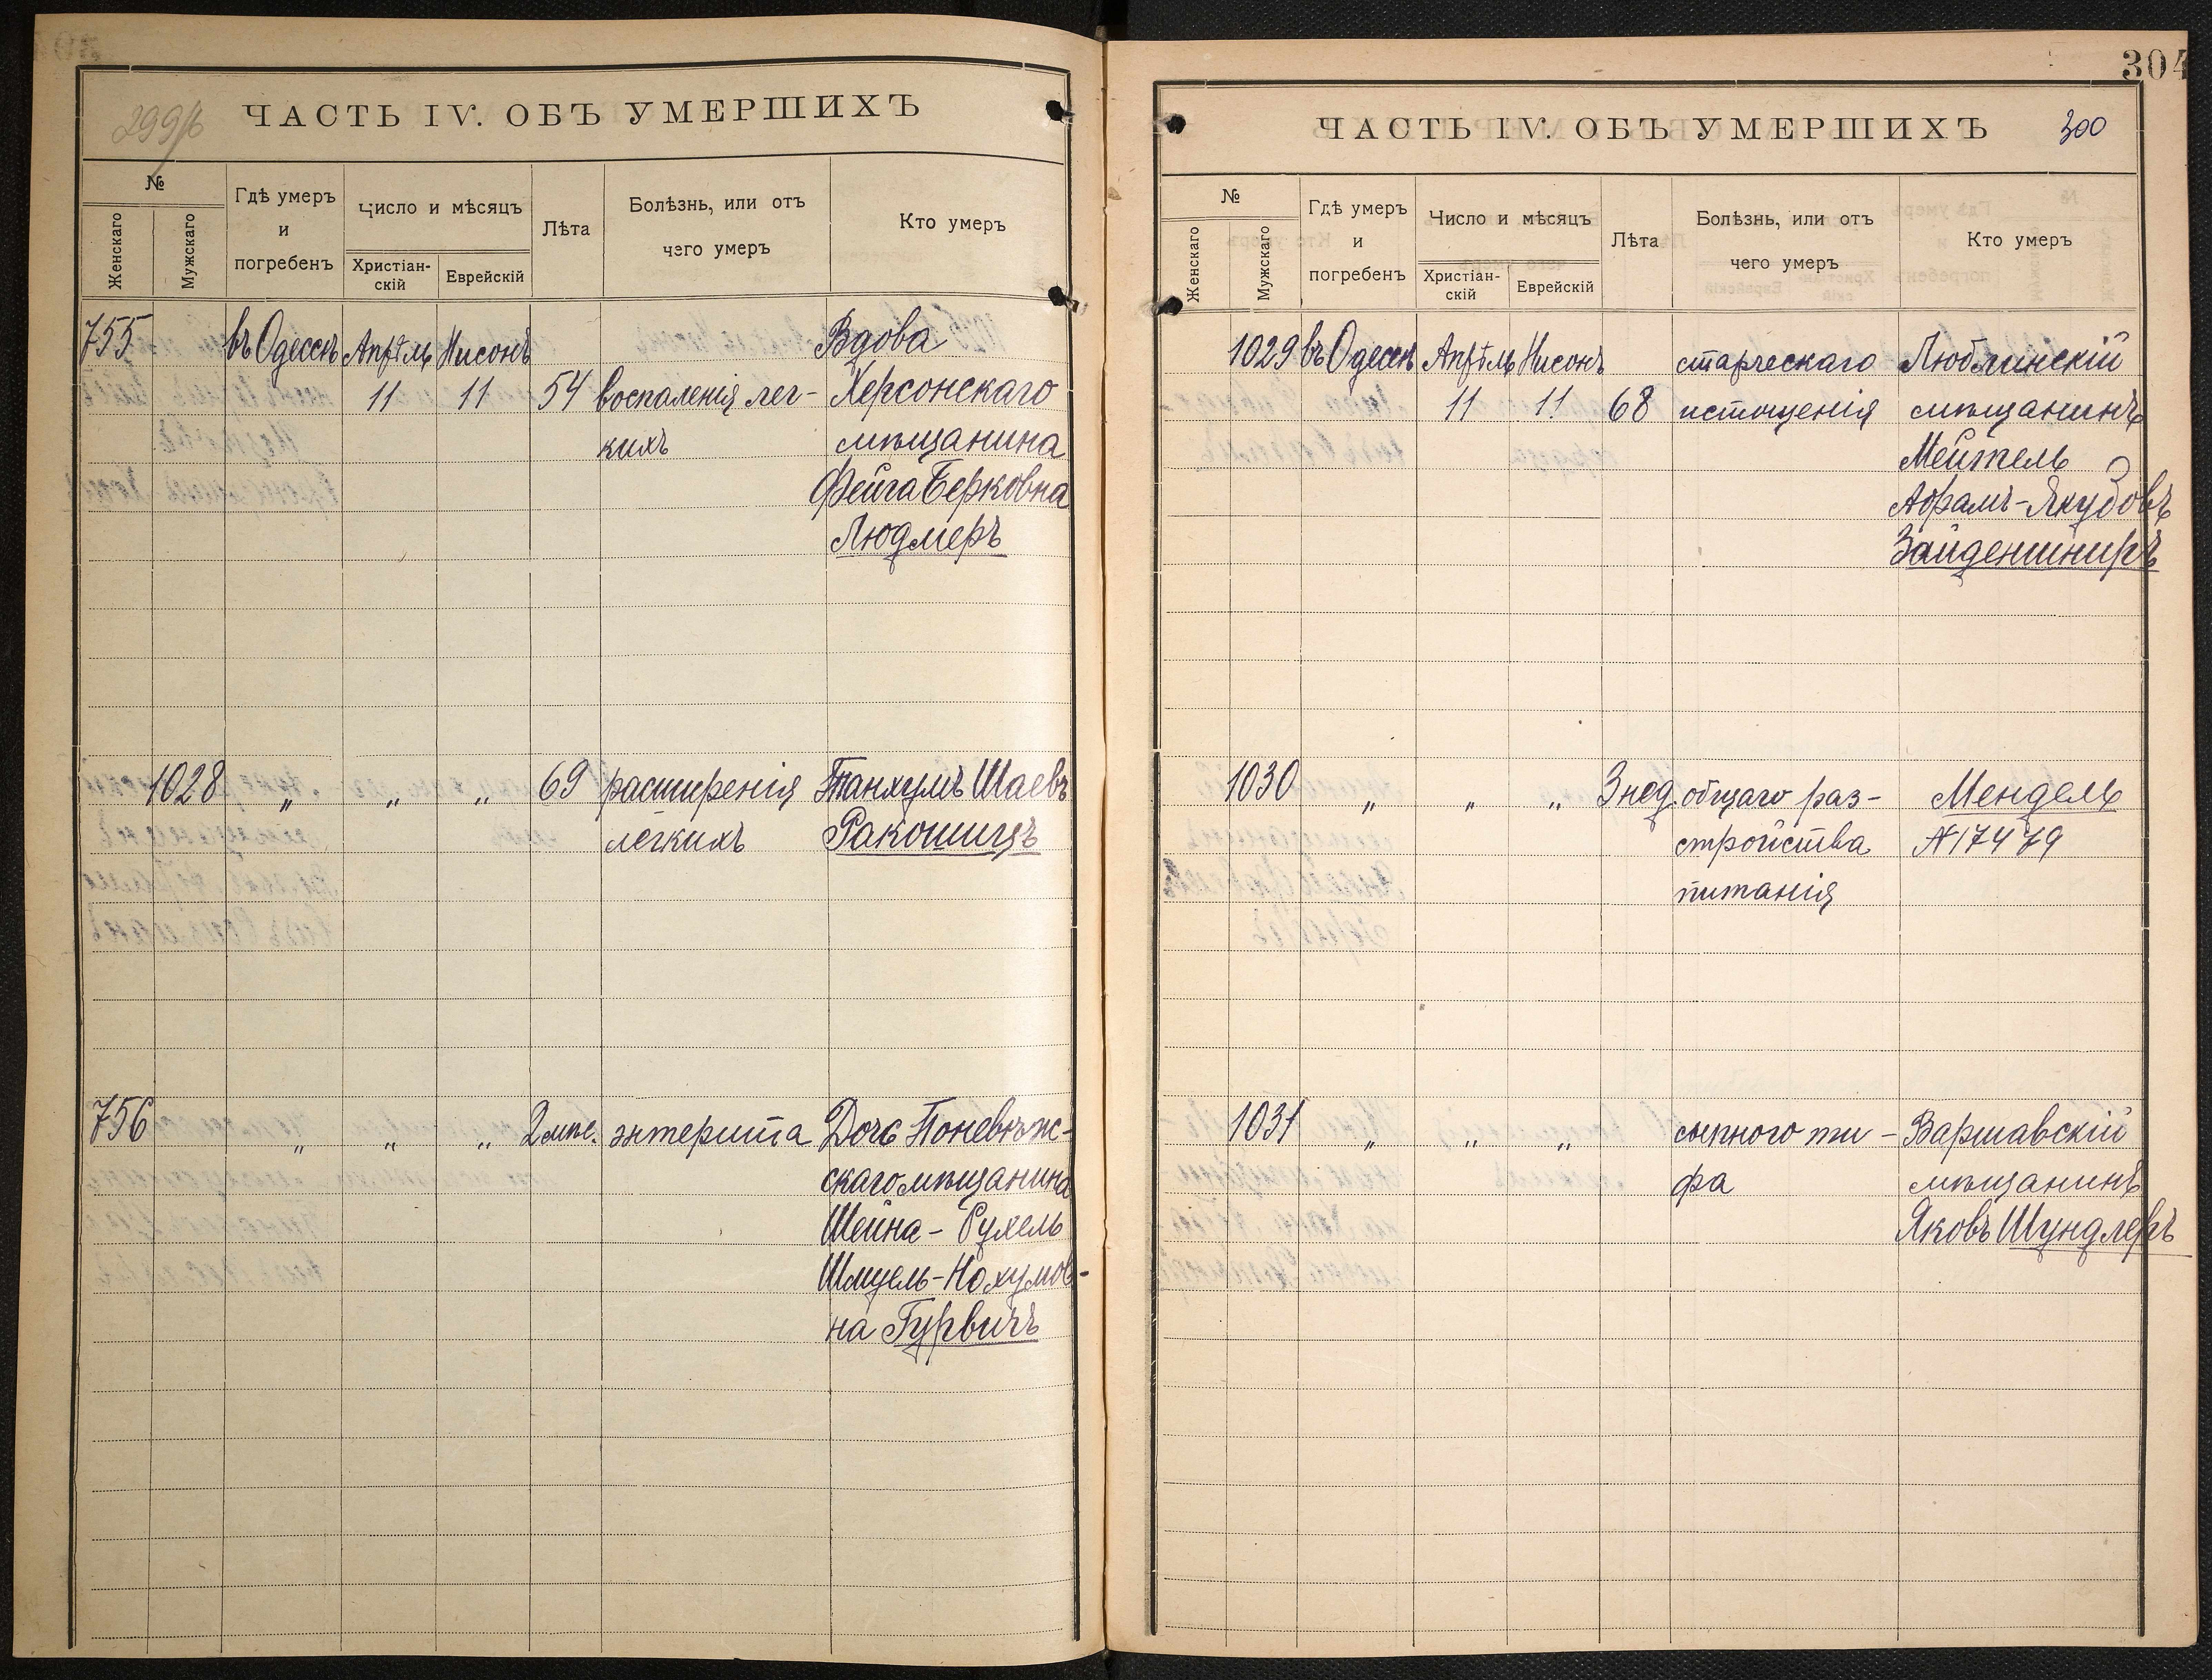 299
ЧАСТЬ IV. ОБЪ УМЕРШИХЪ
№
Женскаго
Мужскаго
Гдѣ умеръ
и
погребенъ
Число и мѣсяцъ
Христіан-
скій
Еврейскій
Лѣта
Болѣзнь, или отъ
чего умеръ
Кто умеръ
755 въ Одессѣ Апрѣль Нисонъ Вдова
11 11 54 воспаленія лег- Херсонскаго
кихъ мѣщанина
Фейга Берковна
Людмеръ
1028 „ „ „ 69 расширенія Танхумъ Шаевъ
легкихъ Ракошицъ
756 „ „ „ 2 мѣс. энтерита Дочь Поневѣж-
скаго мѣщанина
Шейна-Рухель
Шмуель-Нохумов-
на Гурвичъ
304
ЧАСТЬ IV. ОБЪ УМЕРШИХЪ 300
№
Женскаго
Мужскаго
Гдѣ умеръ
и
погребенъ
Число и мѣсяцъ
Христіан-
скій
Еврейскій
Лѣта
Болѣзнь, или отъ
чего умеръ
Кто умеръ
1029 въ Одессѣ Апрѣль Нисонъ старческаго Люблинскій
11 11 68 истощенія мѣщанинъ
Мейтель
Абрамъ-Якубовъ
Зайденшниръ
1030 „ „ „ 3 нед. общаго раз- Мендель
стройства N 17479
питанія
1031 „ „ „ сыпного ти- Варшавскій
фа мѣщанинъ
Яковъ Шундлеръ